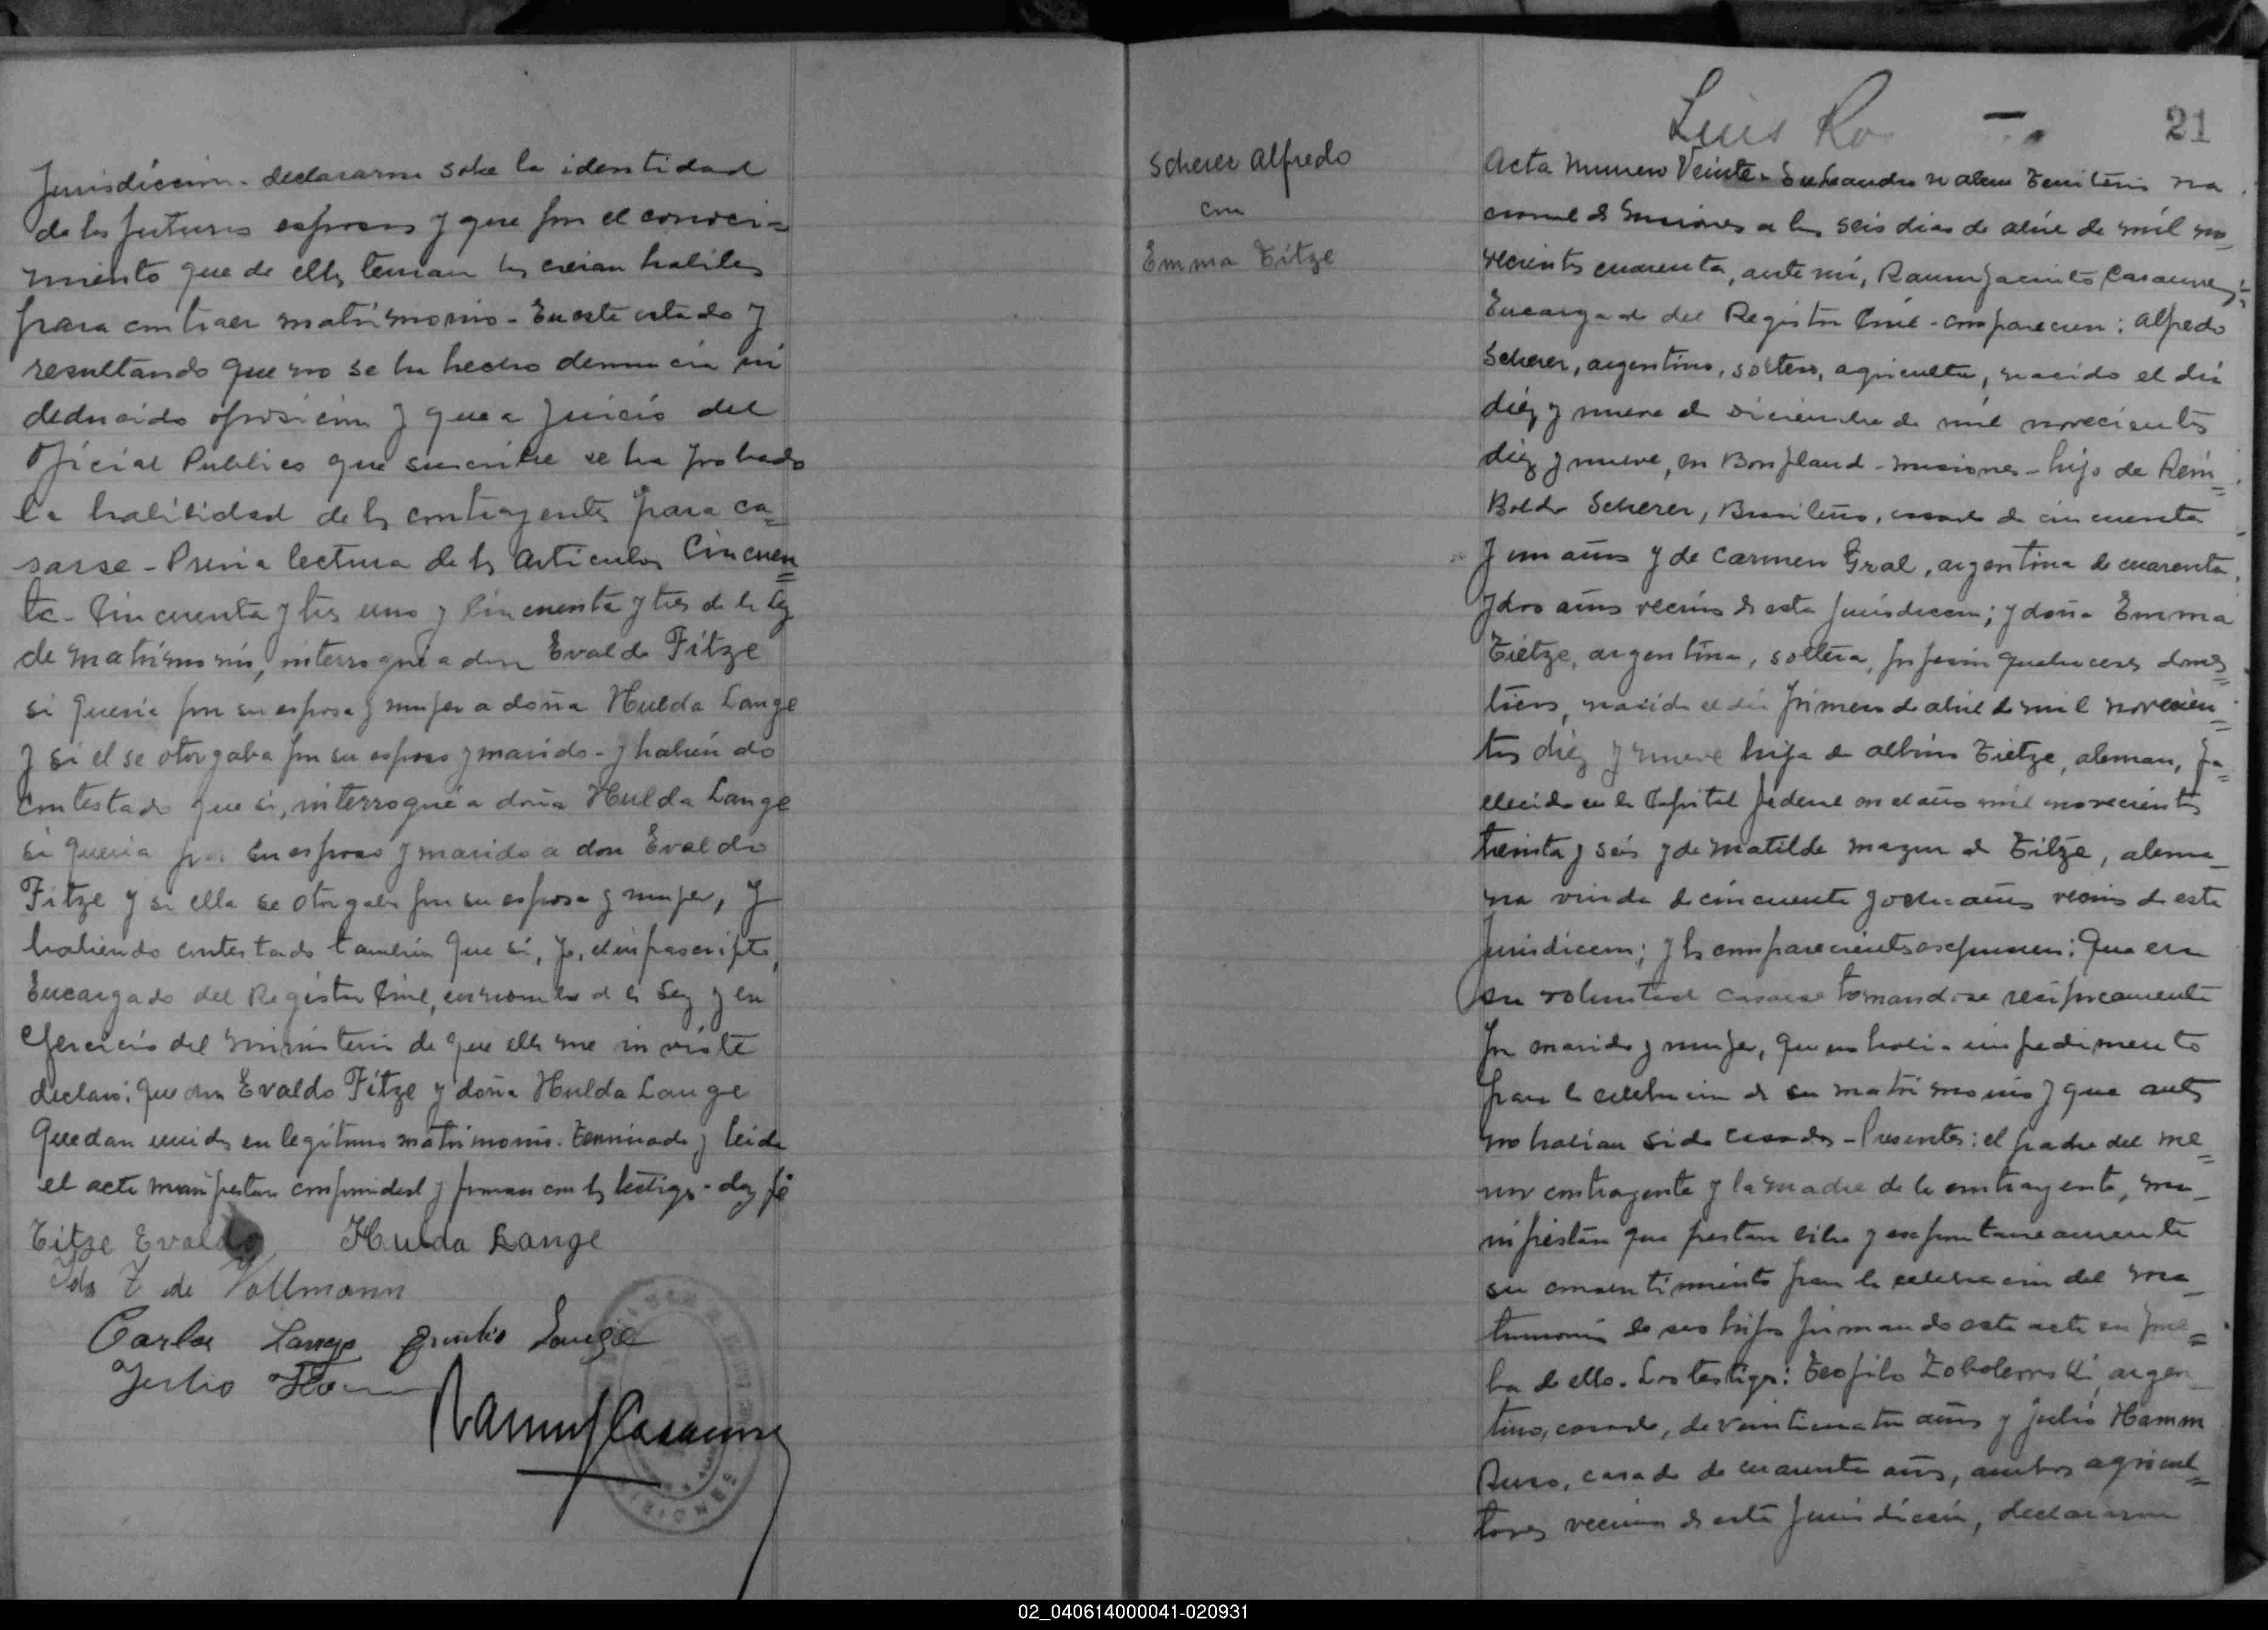 Jurisdicción - declararon sobre la identidad
de los futuros esposos y que por el conoci=
miento que de ellos tenian los creian habiles
para contraer matrimonio - En este estado y
resultando que no se ha hecho denuncia ni
deducido oposicion y que a juicio del
Oficial Publico que suscribe se ha probado
la habilidad de los contrayentes para ca=
sarse - Previa lectura de los articulos Cincuen=
ta - Cincuenta y tres uno y Cincuenta y tres de la ley
de matrimonio, interrogué a don Evaldo Titze
si queria por su esposa y mujer a doña Hulda Lange
y si el se otorgaba por su esposo y marido - y habiendo
contestado que si, interrogué a doña Hulda Lange
si queria por su esposo y marido a don Evaldo
Titze y si ella se otorgaba por su esposa y mujer, y
habiendo contestado tambien que si, yo, el infrascripto,
Encargado del Registro Civil, en nombre de la Ley y en
ejercicio del ministerio de que ella me inviste
declaro: que don Evaldo Titze y doña Hulda Lange
quedan unidos en legitimo matrimonio. Terminada y leida
el acta manifestaron conformidad y firman con los testigos - doy fé
Titze Evaldo Hulda Lange
Ida T de Vollmann
Carlos Lange Lange
Julio
Ramon J Casaurre
MISIONES
21
Luis Ro
Scherer Alfredo
con
Emma Titze
Acta Numero Veinte - En Leandro N Alem Territorio na
cional de Misiones a los seis dias de abril de mil no
vecientos cuarenta, ante mi, Ramon Jacinto Casaurre
Encargado del Registro Civil - comparecen: Alfredo
Scherer, argentino, soltero, agricultor, nacido el dia
diez y nueve de Diciembre de mil novecientos
diez y nueve, en Bonpland - Misiones - hijo de Rein=
Boldo Scherer, Brasileño, casado de cincuenta
y un años y de Carmen Gral, argentina de cuarenta
y dos años vecinos de esta Jurisdiccion; y doña Emma
Tietze, argentina, soltera, profesion quehaceres domes=
ticos, nacida el dia primero de abril de mil novecien=
tos diez y nueve hija de Albino Tietze, aleman, fa=
llecido en la Capital Federal en el año mil novecientos
treinta y seis y de Matilde Mazur de Titze, alema_
na viuda de cincuenta y ocho años vecina de esta
Jurisdiccion; y los comparecientes expusieron: Que era
su voluntad casarse tomandose reciprocamente
por marido y mujer, que no habia impedimento
para la celebracion de su matrimonio y que antes
no habian sido casados - Presentes: el padre del me=
nor contrayente y la madre de la contrayente, ma_
nifiestan que prestan libre y espontaneamente
su consentimiento para la celebracion del ma_
trimonio de sus hijos firmando esta acta en prue=
ba de ello. Los testigos: Teofilo argen_
tino, casado, de veinticuatro años y Julio Hamm
Ruso, casado de cuarenta años, ambos agricul=
tores vecinos de esta Jurisdicción, declararon
02_040614000041-020931